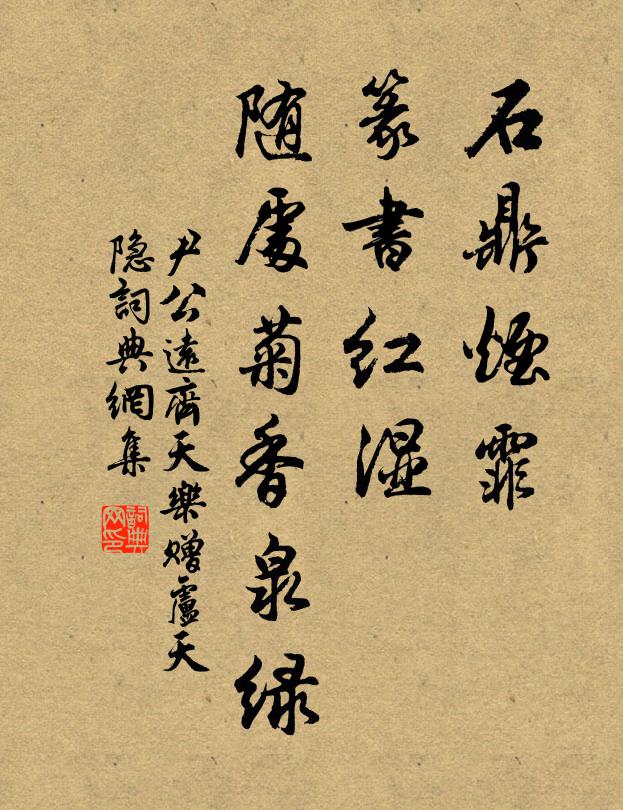 石鼎煙霏
篆書紅湿
随處菊香泉緑
尹公遠齊天樂贈盧天
隐詞典網集
詞典网印